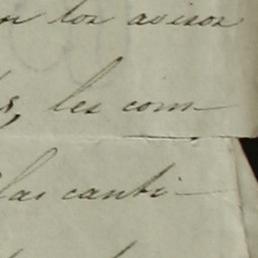 los avisos
les com-
las canti-